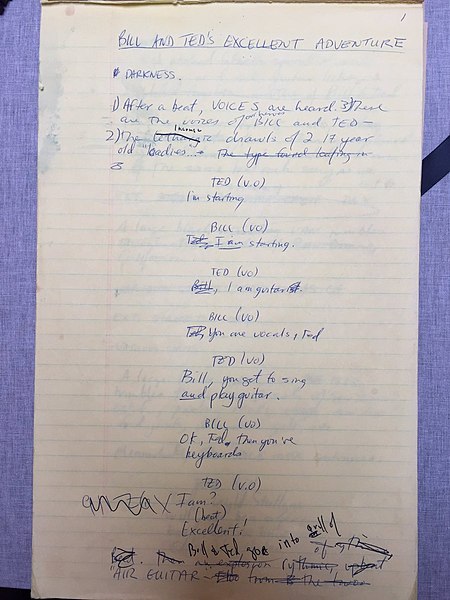 1
BILL AND TED'S EXCELLENT ADVENTURE
DARKNESS.
1) After a beat, VOICES are heard 3) These
are the voices of our heroes BILL and TED —
2) The drawls of 2 17 year
old "badies... The type found loafing in
TED (V.O)
I'm starting
BILL (VO)
Ted, I am starting.
TED (VO)
Bill, I am guitarist.
BILL (VO)
Ted, You are vocals, Ted
TED (VO)
Bill, you get to sing
and play guitar.
BILL (VO)
Ok, Ted, then you're
keyboards
TED (V.O)
I am?
(beat)
Excellent!
Beat. Then Bill & Ted go into a riff of
an explosion of rythmic, upbeat
"AIR GUITAR" from the